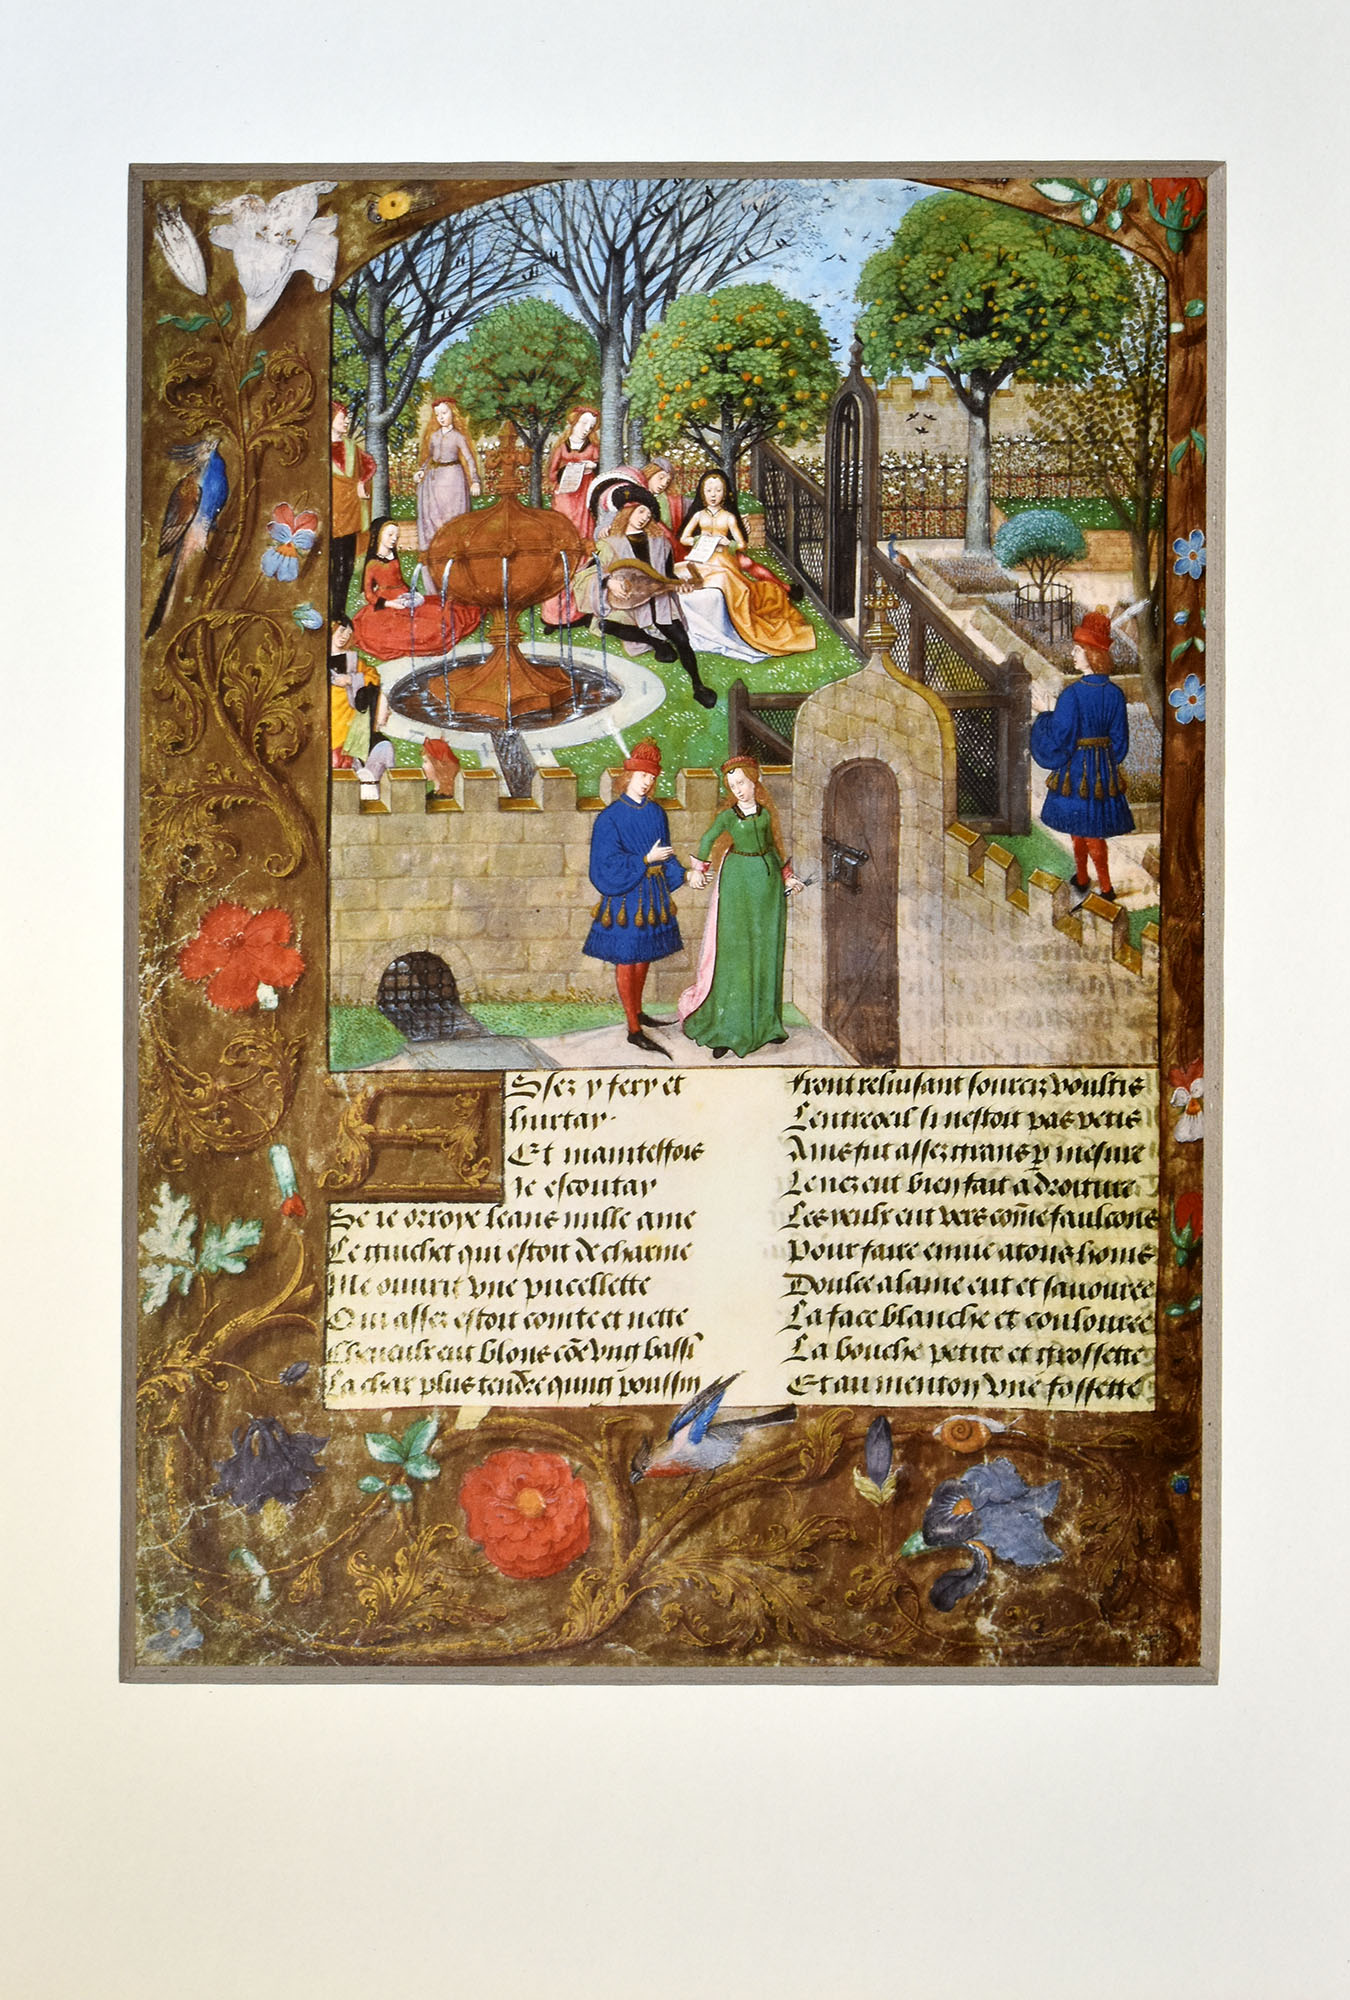 Assez y fery et
hurtay.
Et maintesfois
Je escoutay
Se ie orroye leans nulle ame
Le guichet qui estoit de charme
Me ouurit vne pucellette
Qui assez estoit cointe et nette
Cheueulx eut blons cõe vng bassī
La char plus tendre qung poussin
Front reluisant sourcız voultis
Lentreoeil si nestoit pas petis
Ains fut assez grans p mesure
Le nez eut bien fait a droiture
Les yeulx eut vers cõme faulcons
Pour faire enuie a tous homs
Doulce alaine eut et sauouree
La face blanche et coulouree
La bouche petite et grossette
Et au menton vne fossette